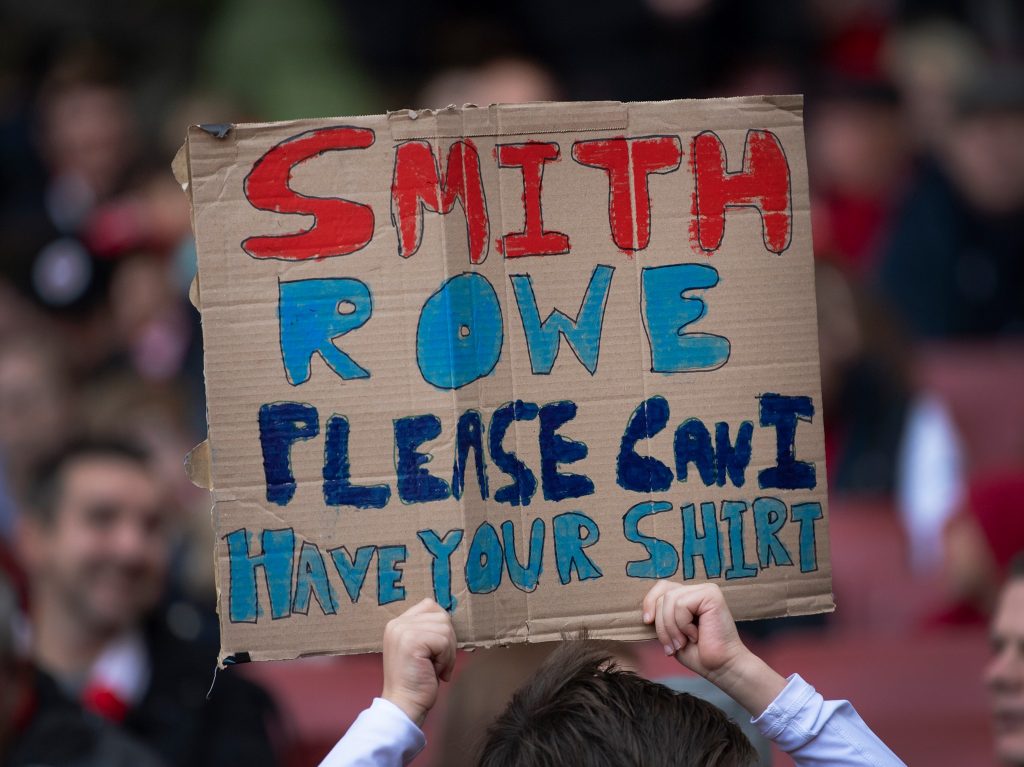 SMITH
ROWE
PLEASE CAN I
HAVE YOUR SHIRT